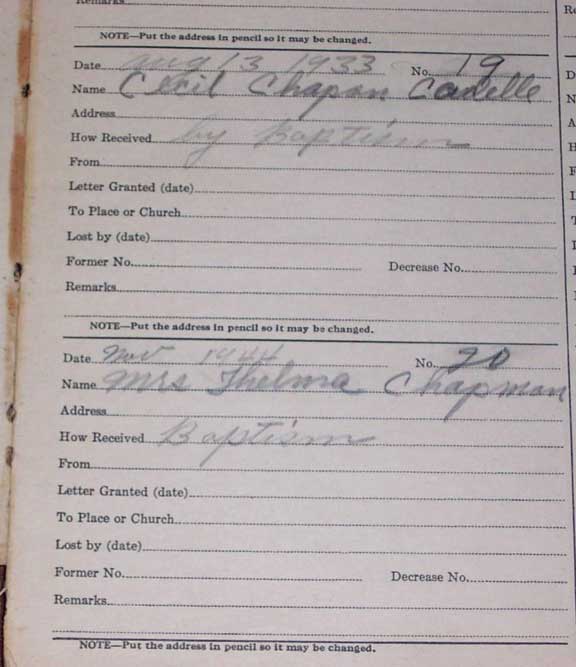 Remarks
NOTE—Put the address in pencil so it may be changed.
Date Aug 13 1933 No. 19
Name Cecil Chapan Candelle
Address
How Received by Baptism
From
Letter Granted (date)
To Place or Church
Lost by (date)
Former No. Decrease No.
Remarks
NOTE—Put the address in pencil so it may be changed.
Date Nov 1944 No. 20
Name Mrs Thelma Chapman
Address
How Received Baptism
From
Letter Granted (date)
To Place or Church
Lost by (date)
Former No. Decrease No.
Remarks
NOTE—Put the address in pencil so it may be changed.